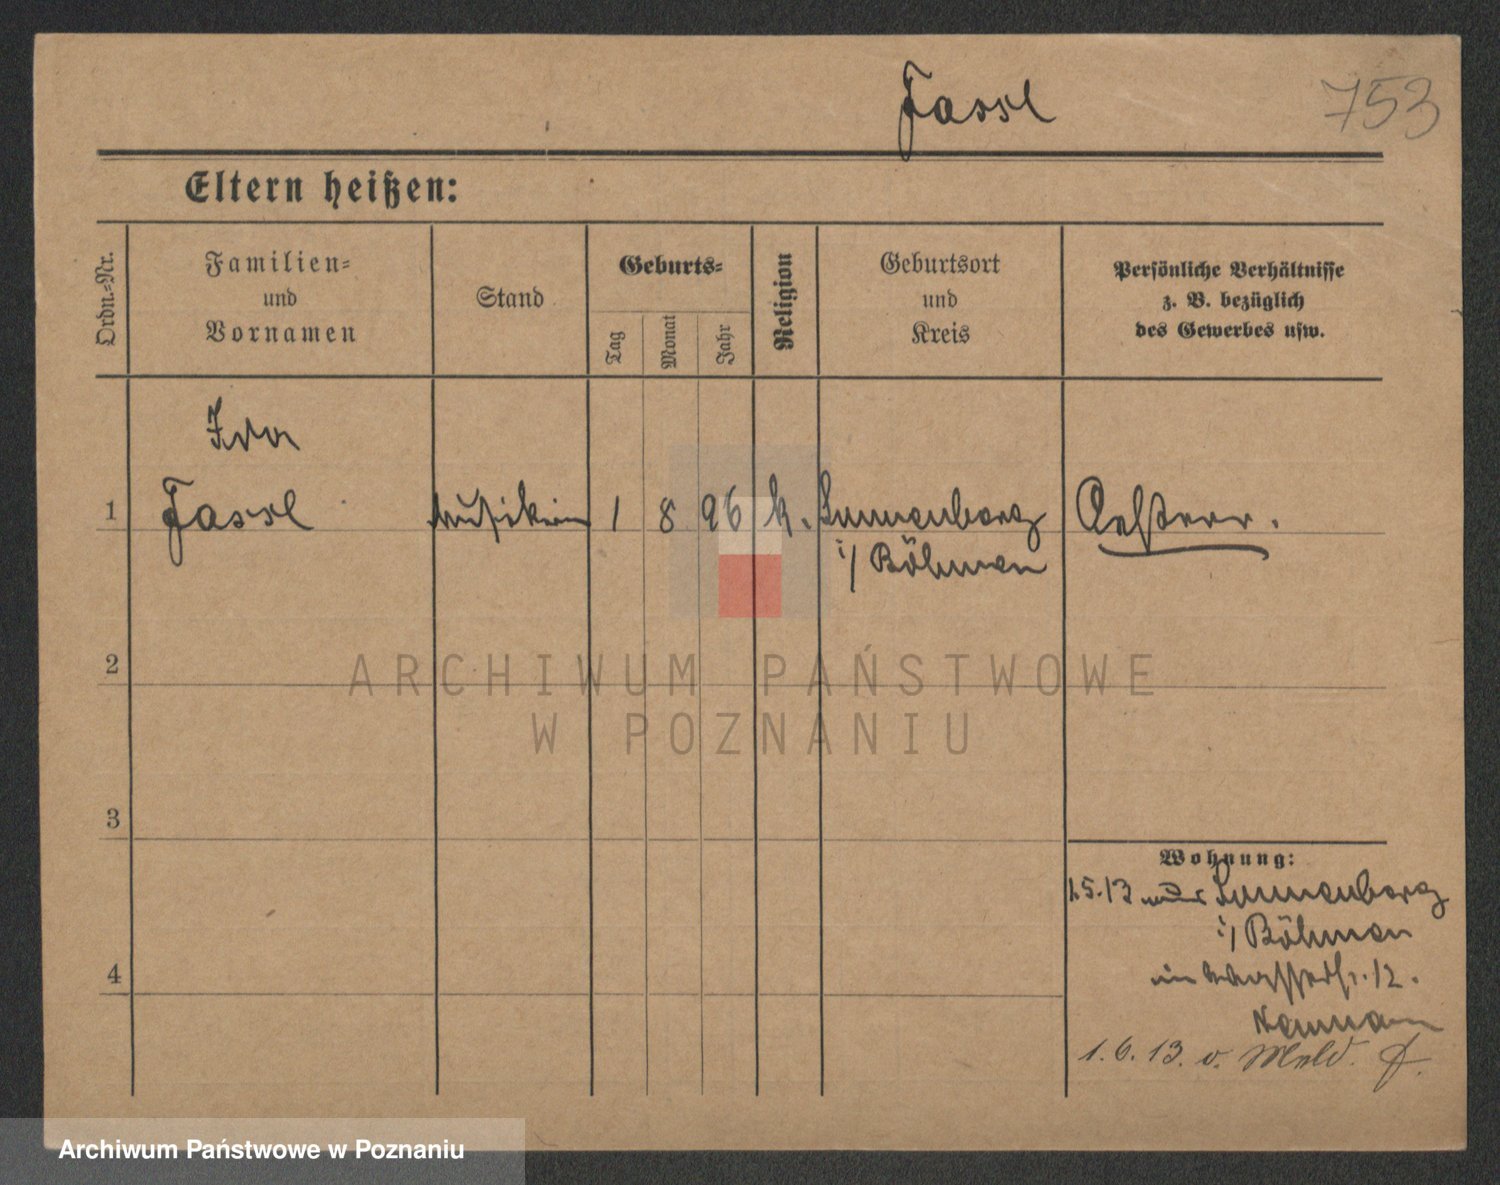 Fassl
753
Eltern heißen:
Ordn.-Nr.
Familien-
und
Vornamen
Stand
Geburts-
Tag
Monat
Jahr
Religion
Geburtsort
und
Kreis
Persönliche Verhältnisse
z. B. bezüglich
des Gewerbes usw.
Ida
1 Fassl 1 8 96 k. Sonnenberg Oesterr.
i/ Böhmen
2
ARCHIWUM PAŃSTWOWE
W POZNANIU
3
Wohnung:
1.5.13 Sonnenberg
i/ Böhmen
4
12.
1.6.13. v. Meld.
Archiwum Państwowe w Poznaniu